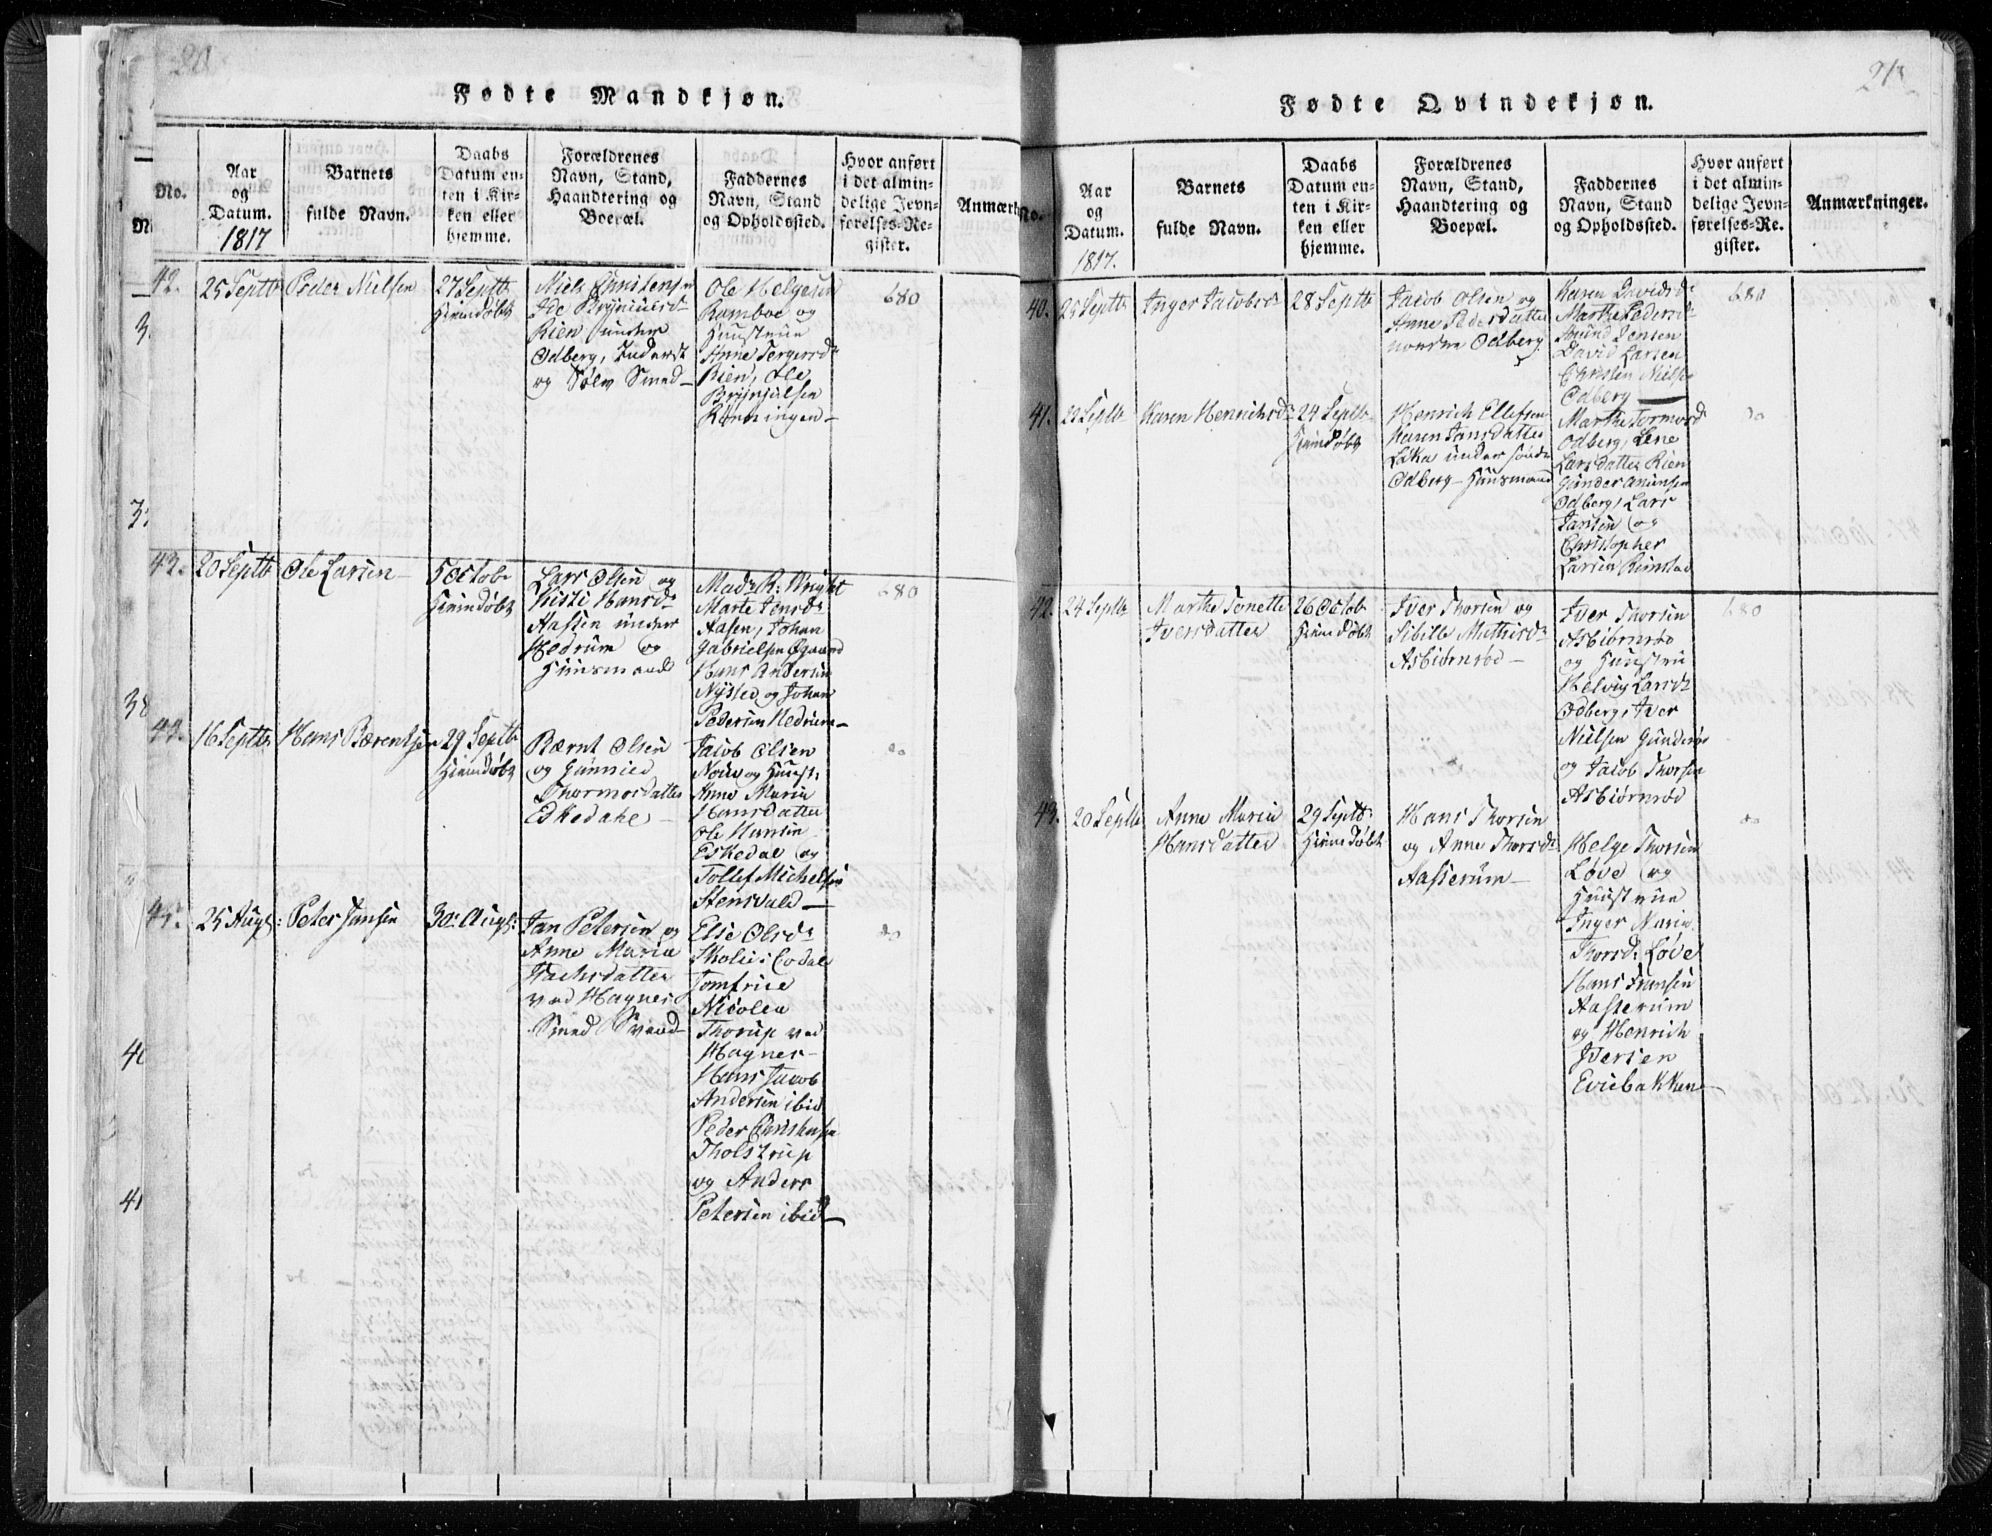 20
Fødte Mandkjøn.
No.
Aar og Datum. 1817
Barnets fulde Navn.
Daabs Datum enten i Kirken eller hjemme.
Forældrenes Navn, Stand, Haandtering og Boepæl.
Faddernes Navn, Stand og Opholdssted.
Hvor anført i det almindelige Jevnførelses-Register.
Anmærk
42.
25 Septb
Peder Nielsen
27 Septb
Hiemdøbt
Niels Christensen
Rien under
Odberg, Inderst
og Sølv Smed
Ole Helgesen
Ramboe og
Huustrue
Anne Torgersdr
Rien, Ole
Brynjulsen
Rønningen
680
43.
20 Septb
Ole Larsen
5 Octob
Hiemdøbt
Lars Olsen og
Kisti Hansdr
Aassen under
Hedrum og
Huusmand
Madr R: Wright
Marte Jensdr
Aasen, Johan
Gabrielsen Øgaard
Hans Andersen
Nysted og Johan
Pedersen Hedrum
680
44.
16 Septb
Hans Bærentsen
29 Septb
Hiemdøbt
Bærnt Olsen
og Gunnild
Thormosdatter
Eskedahl
Jacob Olsen
og Huust:
Anne Maria
Hansdatter
Ole Hansen
Eskedal og
Tollef Michelsen
Stensvald
do
45.
25 Augst:
Peter Jansen
30 Augst:
Jan Petersen og
Anne Maria
Isachsdatter
ved Hagnes
Smed Svend
Else Olsdr
Jomfrue
Nicolea
Thorup ved
Hagnes
Hans Jacob
Andersen ibid
Peder Christensen
Tholstrup
og Anders
Petersen ibid
do
21
Fødte Qvindekjøn.
No.
Aar og Datum. 1817.
Barnets fulde Navn.
Daabs Datum enten i Kirken eller hjemme.
Forældrenes Navn, Stand, Haandtering og Boepæl.
Faddernes Navn, Stand og Opholdssted.
Hvor anført i det almindelige Jevnførelses-Register.
Anmærkninger.
40.
25 Septb
Inger Jacobsdr
28 Septb
Jacob Olsen og
Anne Pedersdatter
nordre Odberg
Karen Davidsdr
Marthe Pedersdr
Amund Jensen
David Larsen
Christen Nielsen
Odberg
680
41.
23 Septb
Karen Henrichsdr
24 Septb
Hiemdøbt
Henrich Ellefsen
Karen Jansdatter
Løka under søndr
Odberg Huusmand
Marthe Tormosdr
Odberg, Lene
Larsdatter Rien
Gunder Amunsen
Odberg, Lars
Jansen og
Christopher
Larsen Rimstad
do
42.
24 Septb
Marthe Tonette
Iversdatter
26 Octob
Hiemdøbt
Iver Thorsen og
Sibille Mathisdr
Asbiørnrød
Iver Thorsen
Asbiørnrød
og Huustru
Helvig Larsdr
Odberg, Iver
Nielsen Gunderød
og Jacob Thorsen
Asbiørnrød
680
43.
20 Septb
Anne Maria
Hansdatter
29 Septb:
Hiemdøbt
Hans Thorsen
og Anne Thorsdr
Aasserum
Helge Thorsen
Løve og
Huustrue
Inger Maria
Thorsd: Løve
Hans Fransen
Aasserum
og Henrich
Iversen
Eviebakken
do